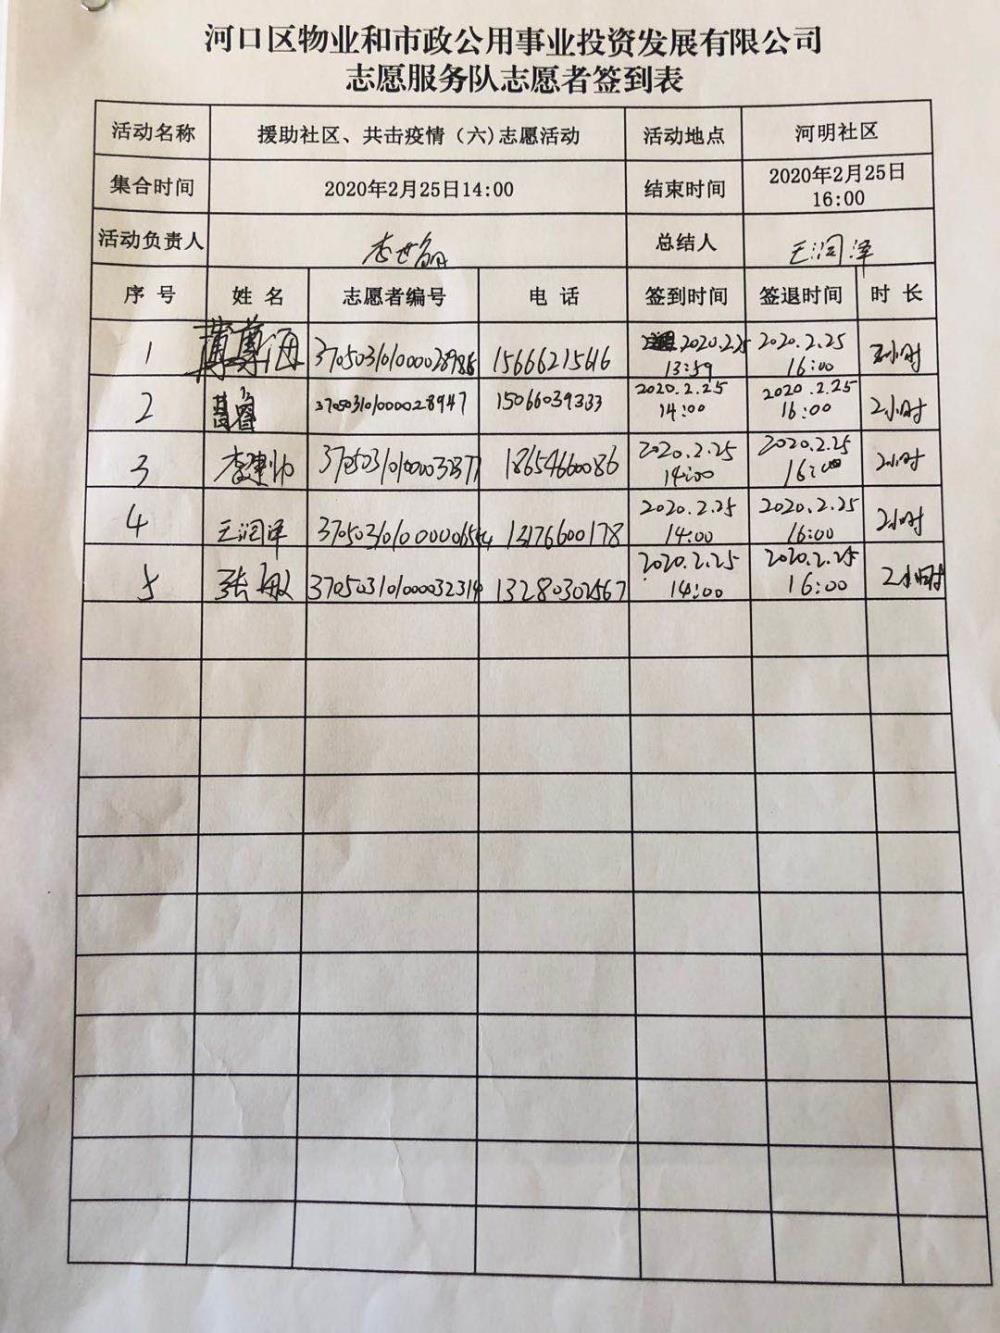 河口区物业和市政公用事业投资发展有限公司
志愿服务队志愿者签到表
活动名称 援助社区、共击疫情（六）志愿活动 活动地点 河明社区
集合时间 2020年2月25日14:00 结束时间 2020年2月25日
16:00
活动负责人 李世 总结人 王润泽
序 号 姓 名 志愿者编号 电 话 签到时间 签退时间 时 长
1 海 15666215616 2020.2.25 2020.2.25 小时
13:59 16:00
2 370503101000028947 15066039333 2020.2.25 2020.2.25 2小时
14:00 16:00
3 李建帅 18654660086 2020.2.25 2020.2.25 2小时
14:00 16:00
4 王润泽 13176600178 2020.2.25 2020.2.25 2小时
14:00 16:00
5 张敏 370503101000032314 13280302567 2020.2.25 2020.2.25 2小时
14:00 16:00